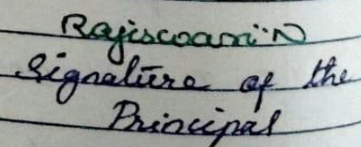 Rajiscoari N
Signature of the
Principal